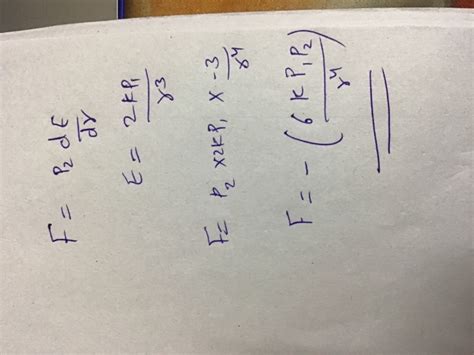 F = P2 dE/dr
E = 2KP1/r3
F = P2 x 2KP1 x -3/r4
F = - (6KP1P2/r4)